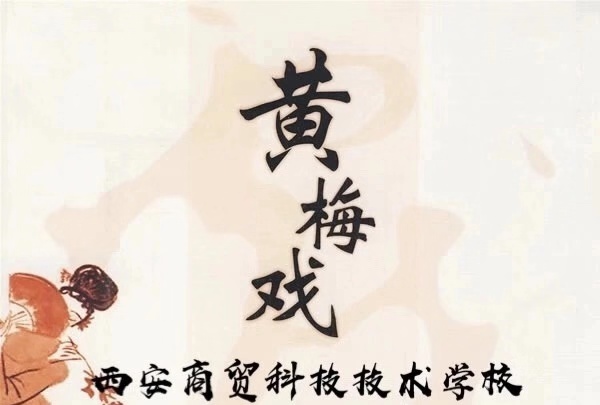 黄梅戏
西安商贸科技技术学校